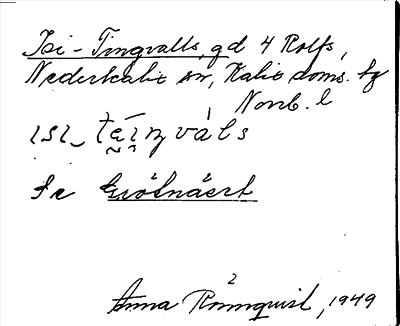 Isi-Tingvalls, gd 4 Rolfs,
Nederkalix sn, Kalix doms. hg
Norrb. l
ısı_ tɛ́ıŋvȧls
Se
Anna Rönnquist, 1949